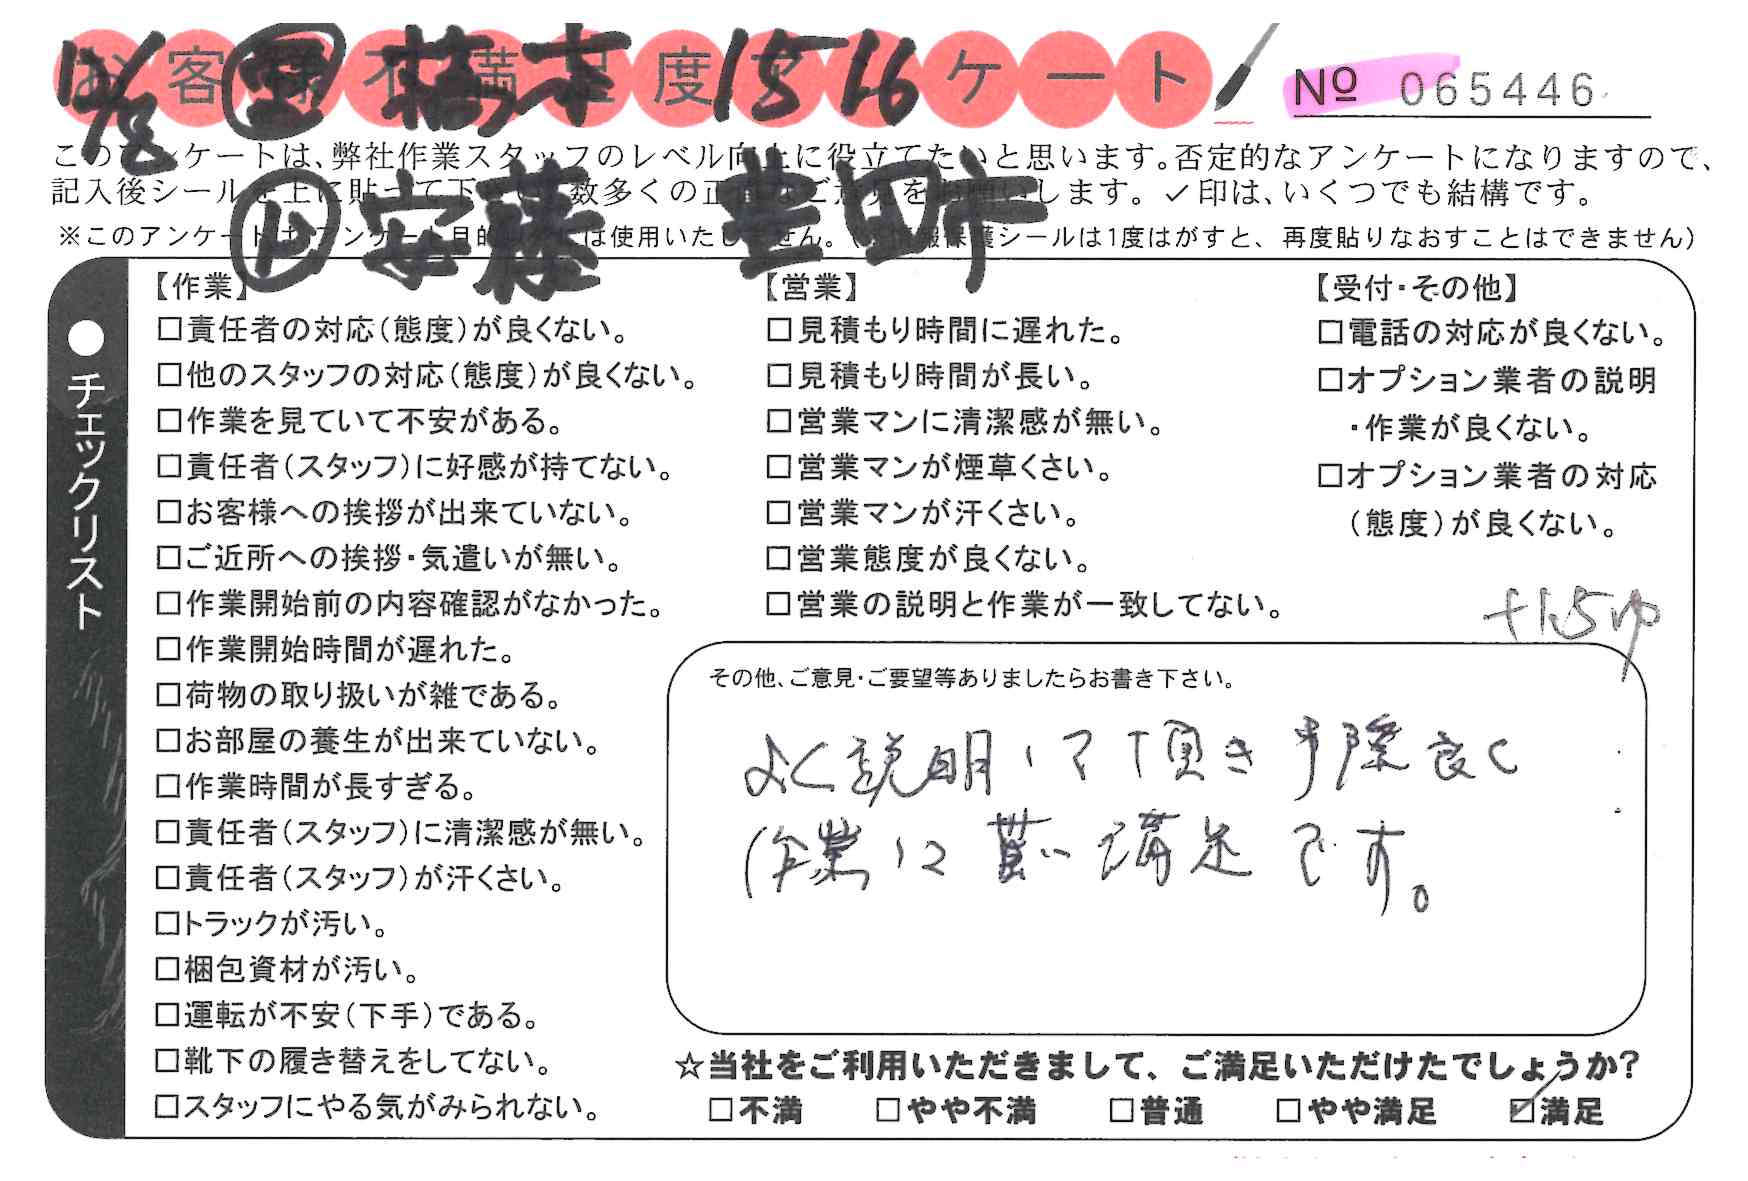 お客様不満足度アンケート
12/8 里 橋本 1516
No 065446
このアンケートは、弊社作業スタッフのレベル向上に役立てたいと思います。否定的なアンケートになりますので、
記入後シールを上に貼って下さい。数多くの正直なご意見をお願いします。✓印は、いくつでも結構です。
安藤 豊田市
※このアンケートはアンケート目的以外には使用いたしません。(※情報保護シールは1度はがすと、再度貼りなおすことはできません)
●チェックリスト
【作業】
□責任者の対応(態度)が良くない。
□他のスタッフの対応(態度)が良くない。
□作業を見ていて不安がある。
□責任者(スタッフ)に好感が持てない。
□お客様への挨拶が出来ていない。
□ご近所への挨拶・気遣いが無い。
□作業開始前の内容確認がなかった。
□作業開始時間が遅れた。
□荷物の取り扱いが雑である。
□お部屋の養生が出来ていない。
□作業時間が長すぎる。
□責任者(スタッフ)に清潔感が無い。
□責任者(スタッフ)が汗くさい。
□トラックが汚い。
□梱包資材が汚い。
□運転が不安(下手)である。
□靴下の履き替えをしてない。
□スタッフにやる気がみられない。
【営業】
□見積もり時間に遅れた。
□見積もり時間が長い。
□営業マンに清潔感が無い。
□営業マンが煙草くさい。
□営業マンが汗くさい。
□営業態度が良くない。
□営業の説明と作業が一致してない。
【受付・その他】
□電話の対応が良くない。
□オプション業者の説明
・作業が良くない。
□オプション業者の対応
(態度)が良くない。
+1.5ゆ
その他、ご意見・ご要望等ありましたらお書き下さい。
よく説明して頂き手際良く
作業して貰い満足です。
☆当社をご利用いただきまして、ご満足いただけたでしょうか?
□不満 □やや不満 □普通 □やや満足 ☑満足